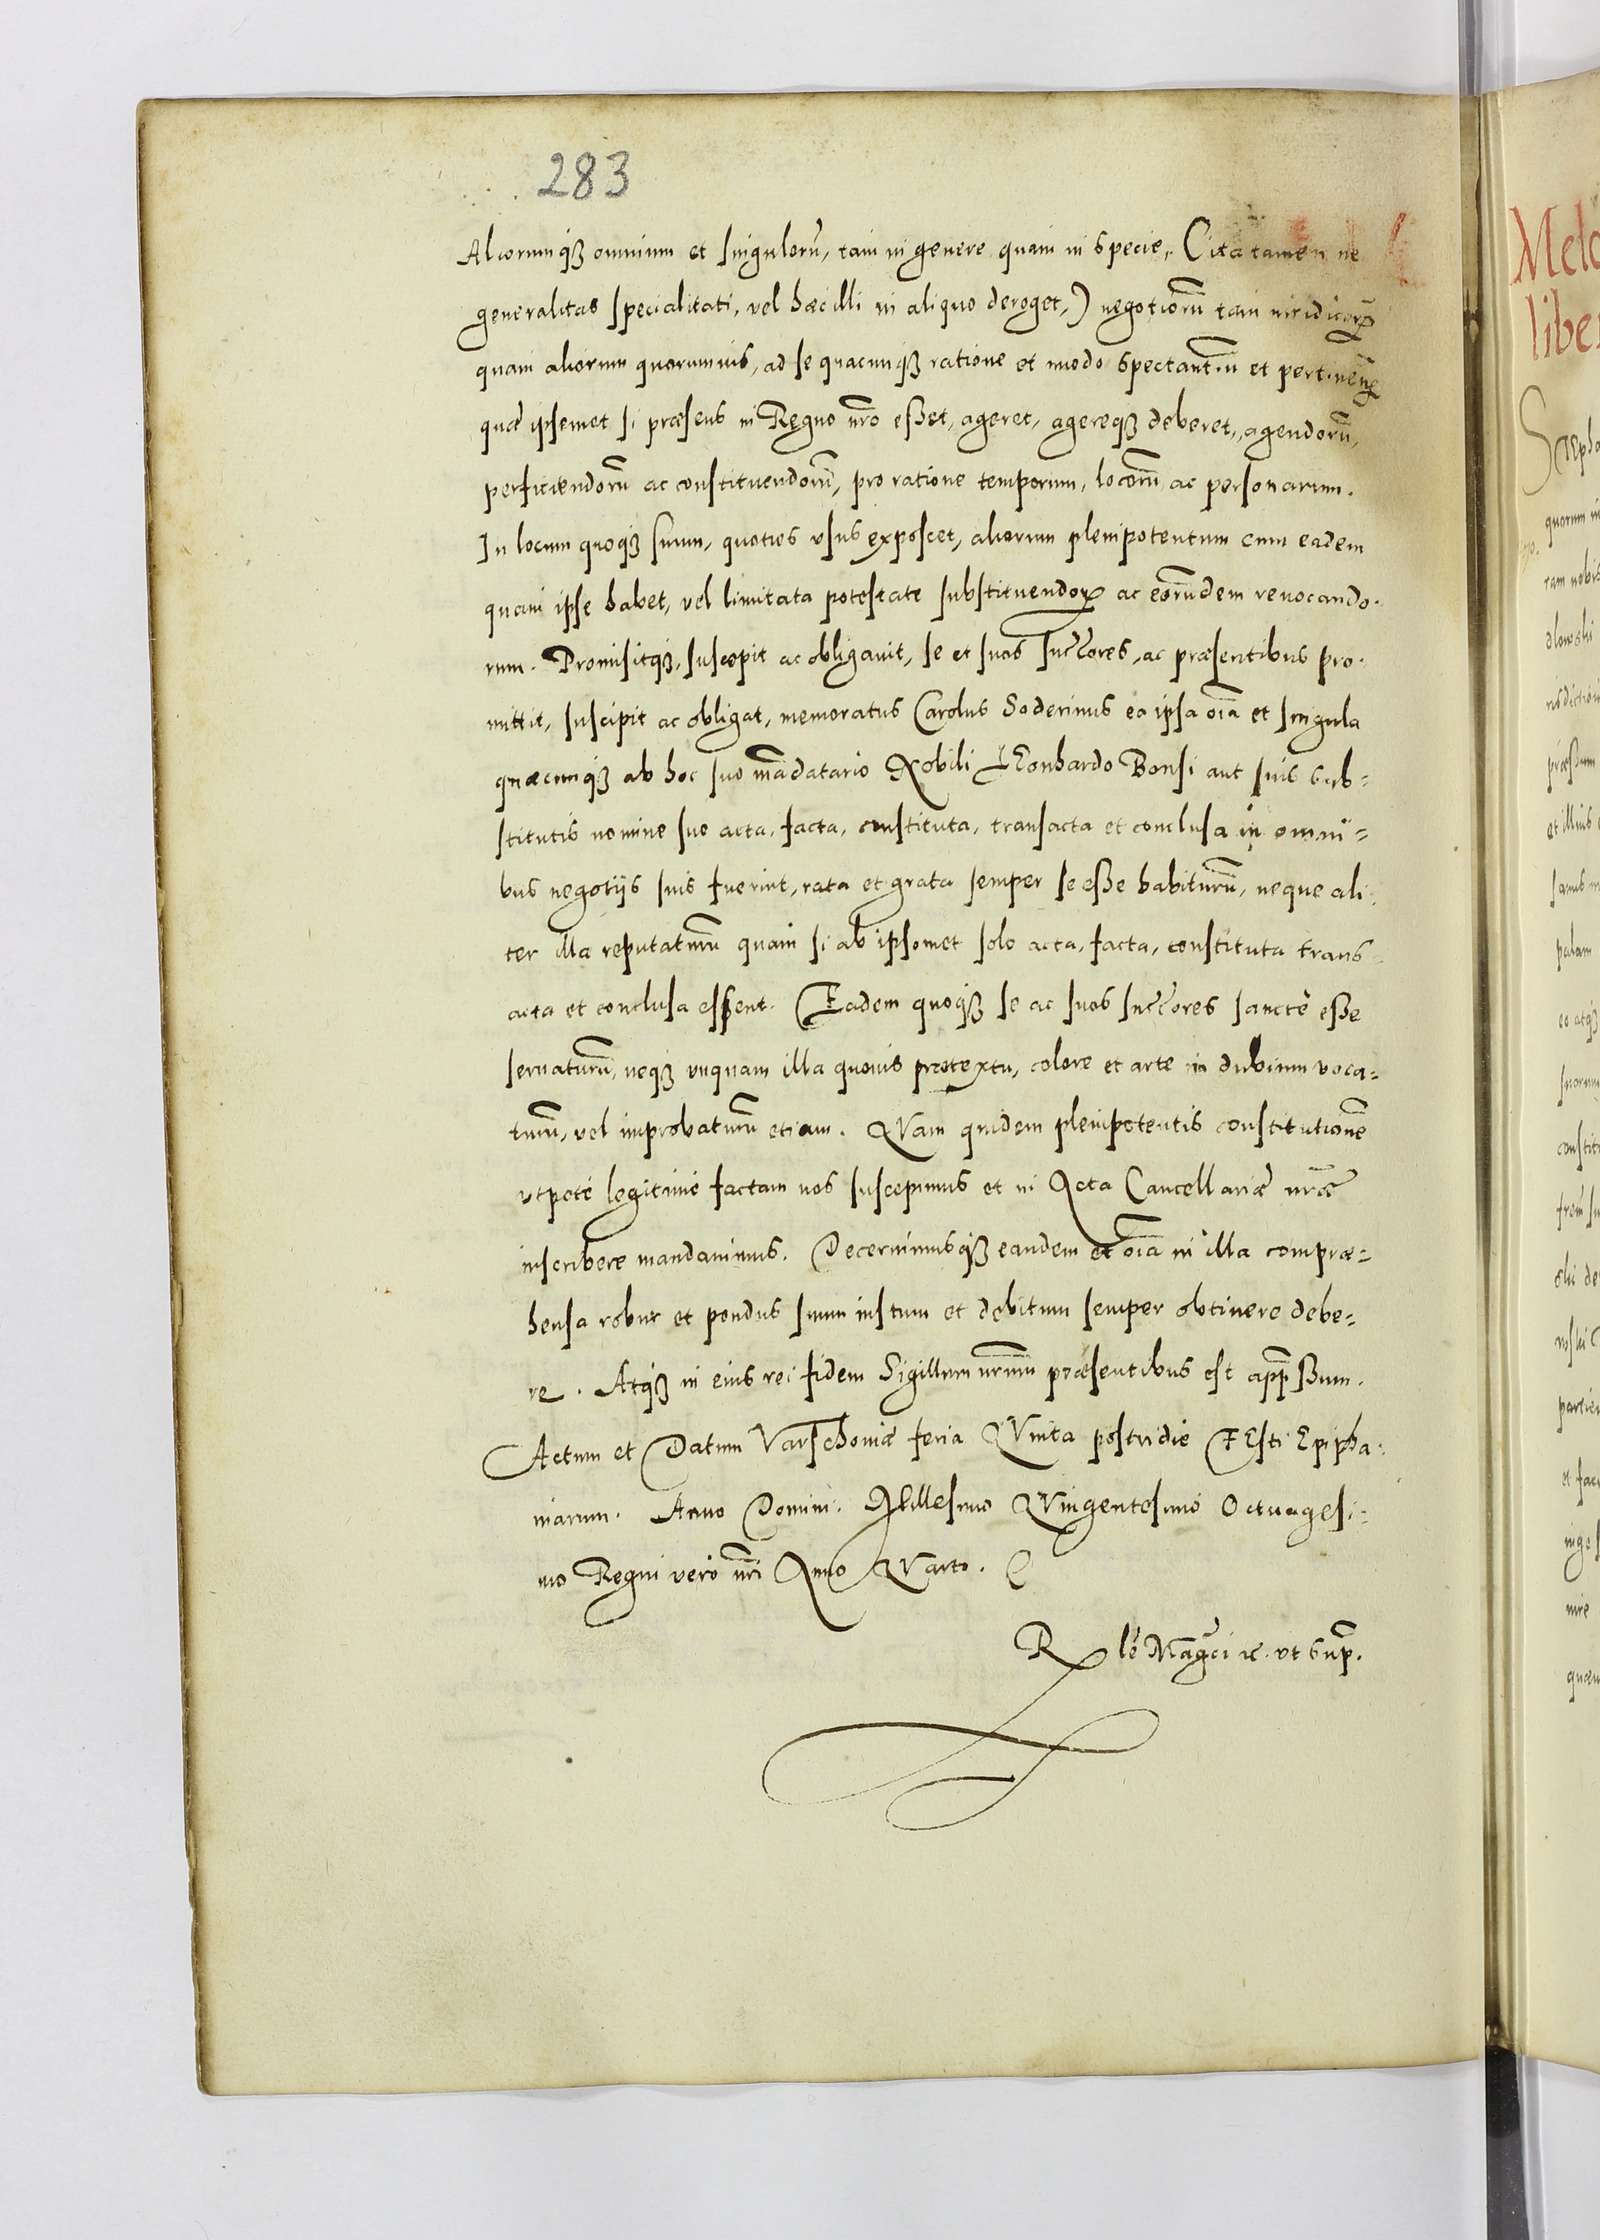 283
Aliorumq́ omnium et singulorũ, tam in genere quam in specie, (ita tamen ne
generalitas specialitati, vel haec illi in aliquo deroget,) negotiorũ tam iuridicorꝝ
quam aliorum quorumuis, ad se quacunq́ ratione et modo spectantiũ et pertinẽtiũ
quæ ipsemet si præsens in Regno nr̃o esset, ageret, agereq́ deberet, agendorũ,
perficiendorũ ac constituendorũ, pro ratione temporum, locorũ ac personarum.
In locum quoq́ suum, quoties vsus exposcet, aliorum plenipotentum cum eadem
quam ipse habet, vel limitata potestate substituendorꝝ ac eorũdem reuocando.
rum. Promisitq́, suscepit ac obligauit, se et suos succ̃ores, ac præsentibus pro.
mittit, suscipit ac obligat, memoratus Carolus Soderinus ea ipsa oĩa et singula
quæcunq́ ab hoc suo mãdatario Nobili Leonhardo Bonsi aut suis sub=
stitutis nomine suo acta, facta, constituta, transacta et conclusa in omni=
bus negotijs suis fuerint, rata et grata semper se esse habiturũ, neque ali
ter illa reputaturũ quam si ab ipsomet solo acta, facta, constituta trans
acta et conclusa essent. Eadem quoq́ se ac suos succ̃ores sanctè esse
seruaturũ, neq́ vnquam illa quouis prætextu, colore et arte in dubium voca=
turũ, vel improbaturũ etiam. Quam quidem plenipotentis constitutionẽ
vtpotè legitimè factam nos suscepimus et in Acta Cancellariæ nr̃æ
inscribere mandauimus. Decernimusq́ eandem et oĩa in illa compræ=
hensa robur et pondus suum iustum et debitum semper obtinere debe=
re. Atq́ in eius rei fidem Sigillum nr̃um præsentibus est app̃ssum.
Actum et Datum Varschouiæ feria Quinta postridiè Festi Epipha.
niarum. Anno Domini. Millesimo Quingentesimo Octuagesi=
mo Regni verò nr̃i Anno Quarto.
Rl̃o Mag̃ci ꝛc. vt sup̃.
Melc
libe
Steph
quorum in
ram nobis
dlowski
risdictioni
præssum
et illius
palam
eo atq́
suorum
constit
frem̃ su
ski de
roski
partiu
et fac
inge
nire
quæu